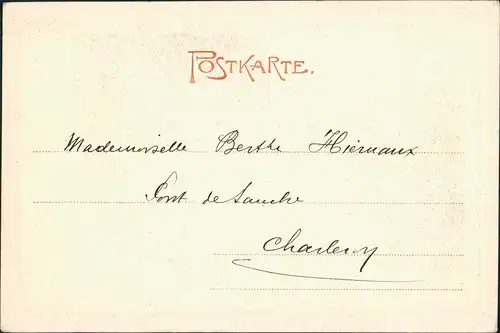 POSTKARTE.
Mademoiselle Berthe Hiernaux
Pont de Sambre
Charleroy